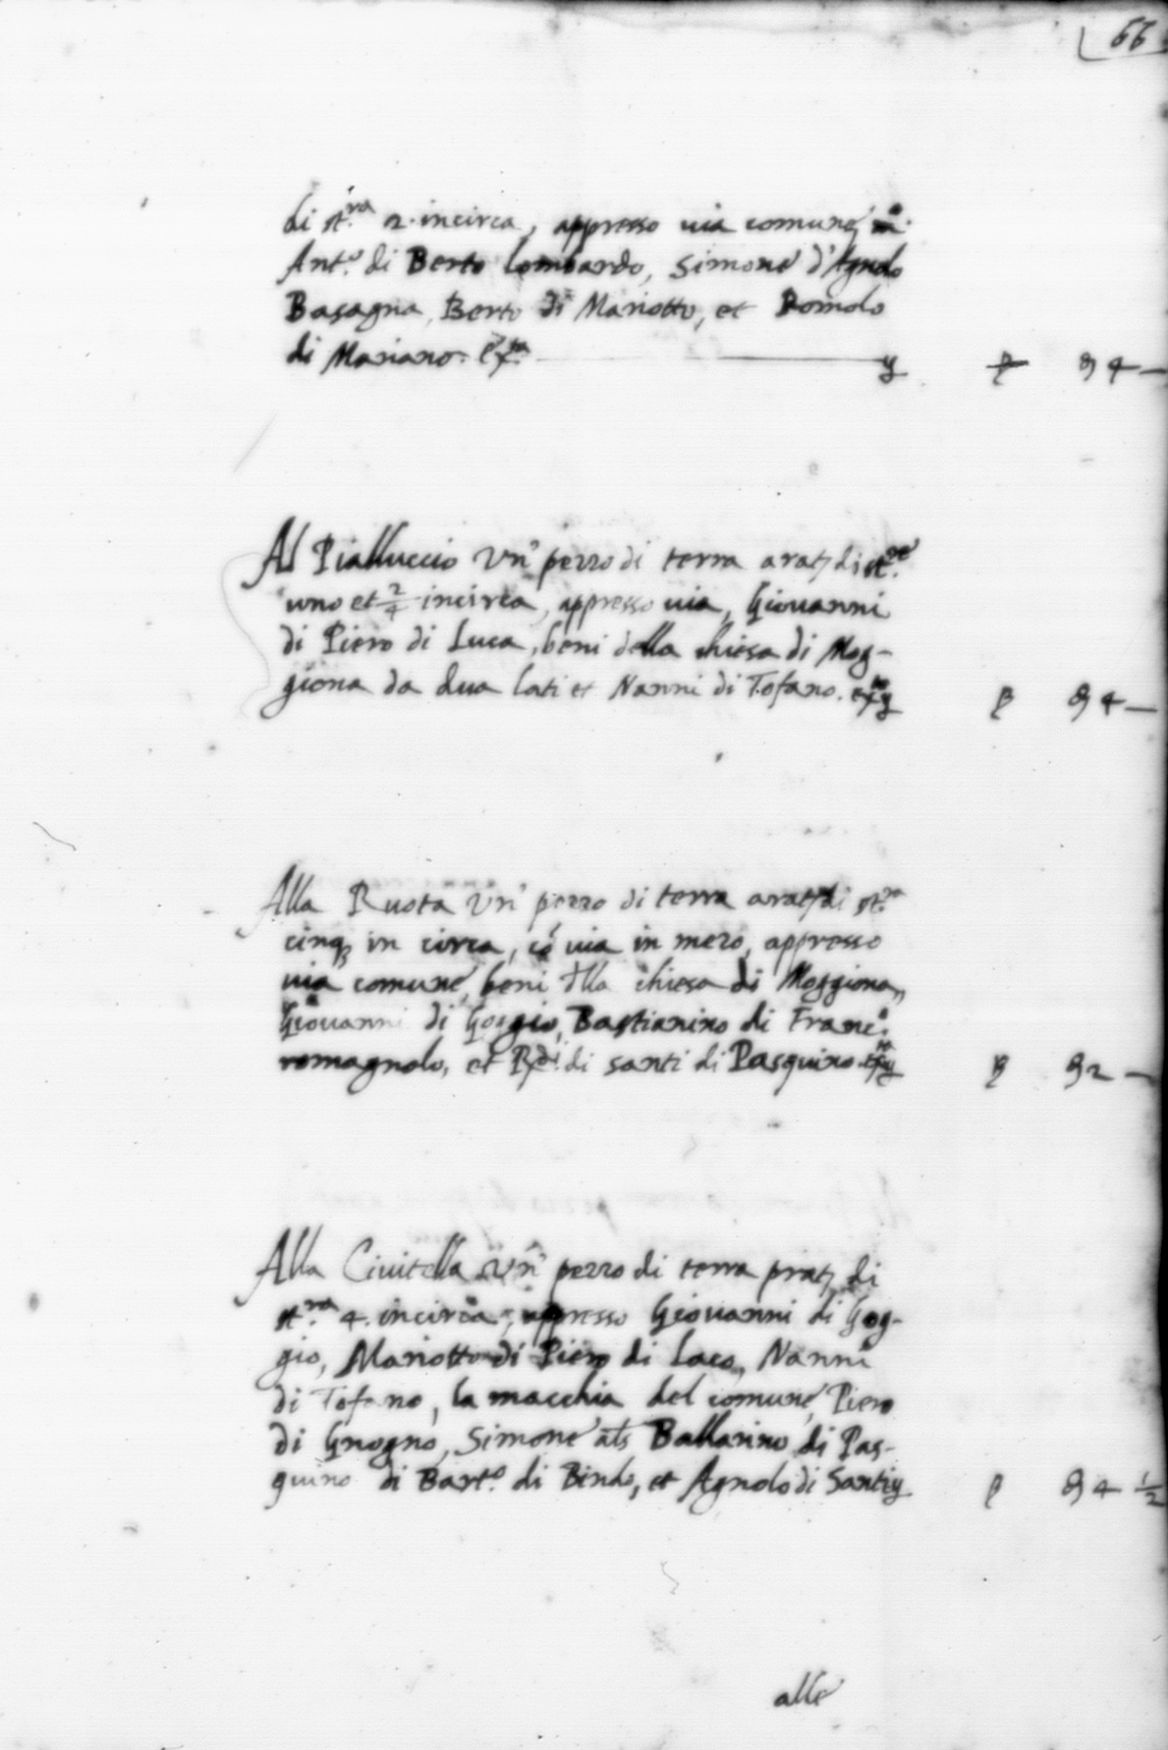 66
di st.ra 2. incirca, appresso uia comune, m.o
Ant.o di Berto lombardo, Simone d'Agnolo
Basagna, Berto di Mariotto, et Romolo
di Mariano.
Al Pialluccio Un' pezzo di terra arat. di st.re
uno et 2/4 incirca, appresso uia, Giouanni
di Piero di Luca, beni della chiesa di Mog-
giona da dua lati et Nanni di Tofano.
Alla Ruota Un' pezzo di terra arat. di st.ra
cinq in circa, có uia in mezo, appresso
uia comune, beni della chiesa di Moggiona,
Giouanni di Goggio, Bastianino di Franc.o
romagnolo, et di santi di Pasquino.
Alla Ciuitella Un' pezzo di terra prat. di
st.ra 4. incirca, appresso Giouanni di Gog-
gio, Mariotto di Piero di Laco, Nanni
di Tofano, la macchia del comune, Piero
di Gnogno, Simone als Ballarino di Pas-
quino di Bart.o di Bindo, et Agnolo di Santi
alle